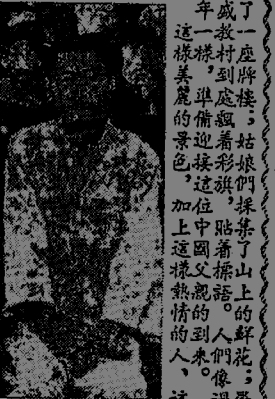 了一座牌樓；姑娘們採集了山上的鮮花；
盛教村到處飄着彩旗，貼着標語。人們像過
年一樣，準備迎接這位中國父親的到來。
這樣美麗的景色，加上這樣熱情的人、這